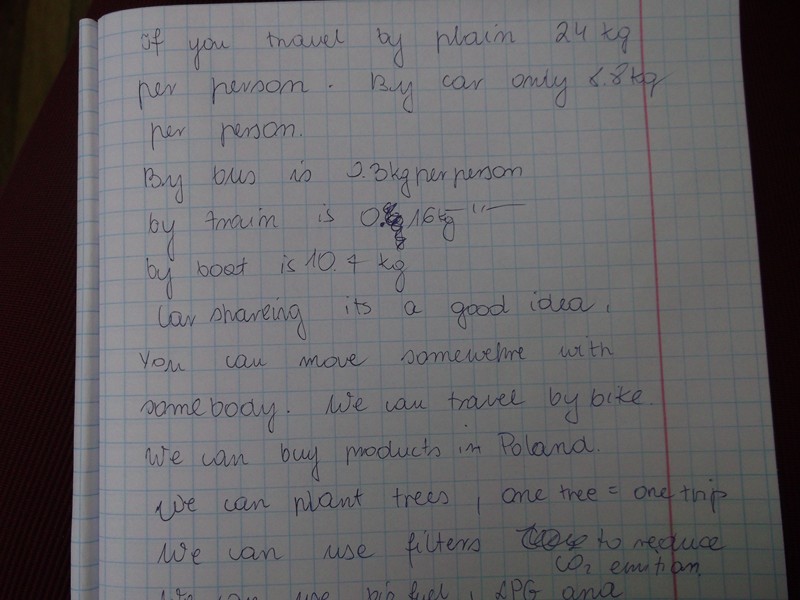 If you travel by plain 24 kg
per person. By car only 8.8kg
per person.
By bus is 0.3kg per person
by train is 0. 16kg —"—
by boat is 10.7 kg
Car shareing its a good idea.
You can move somewehre with
somebody. We can travel by bike.
We can buy products in Poland.
We can plant trees, one tree = one trip
We can use filters to reduce
CO2 emition
We can use bio fuel, LPG and